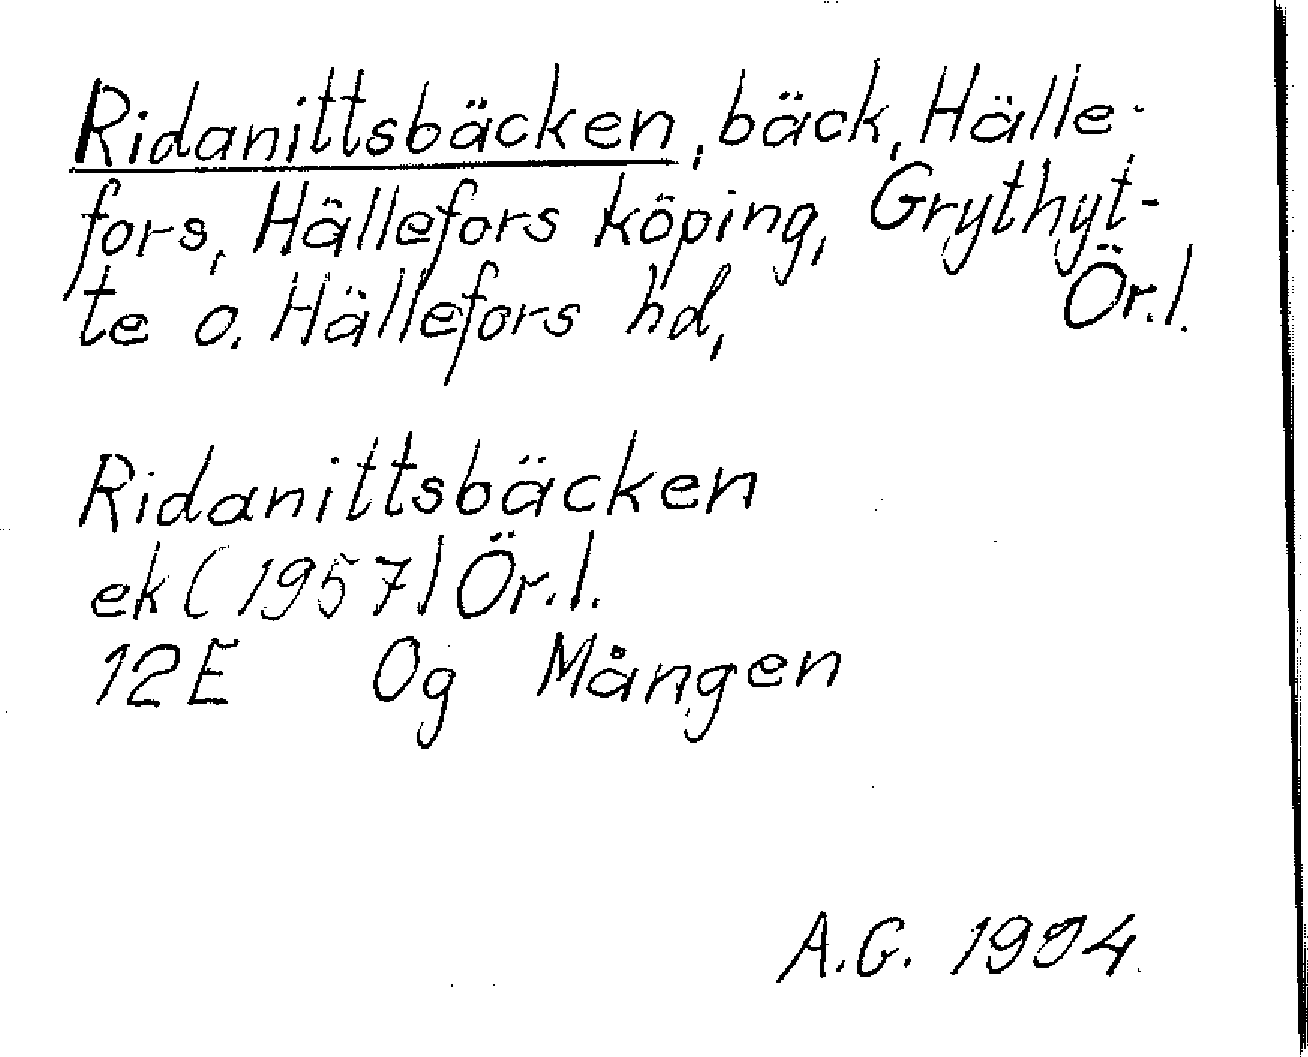 Ridanittsbäcken, bäck, Hälle-
fors, Hällefors köping, Grythyt-
te o. Hällefors hd, Ör.l.
Ridanittsbäcken
ek (1957) Ör.l.
12E Og Mången
A.G. 1994